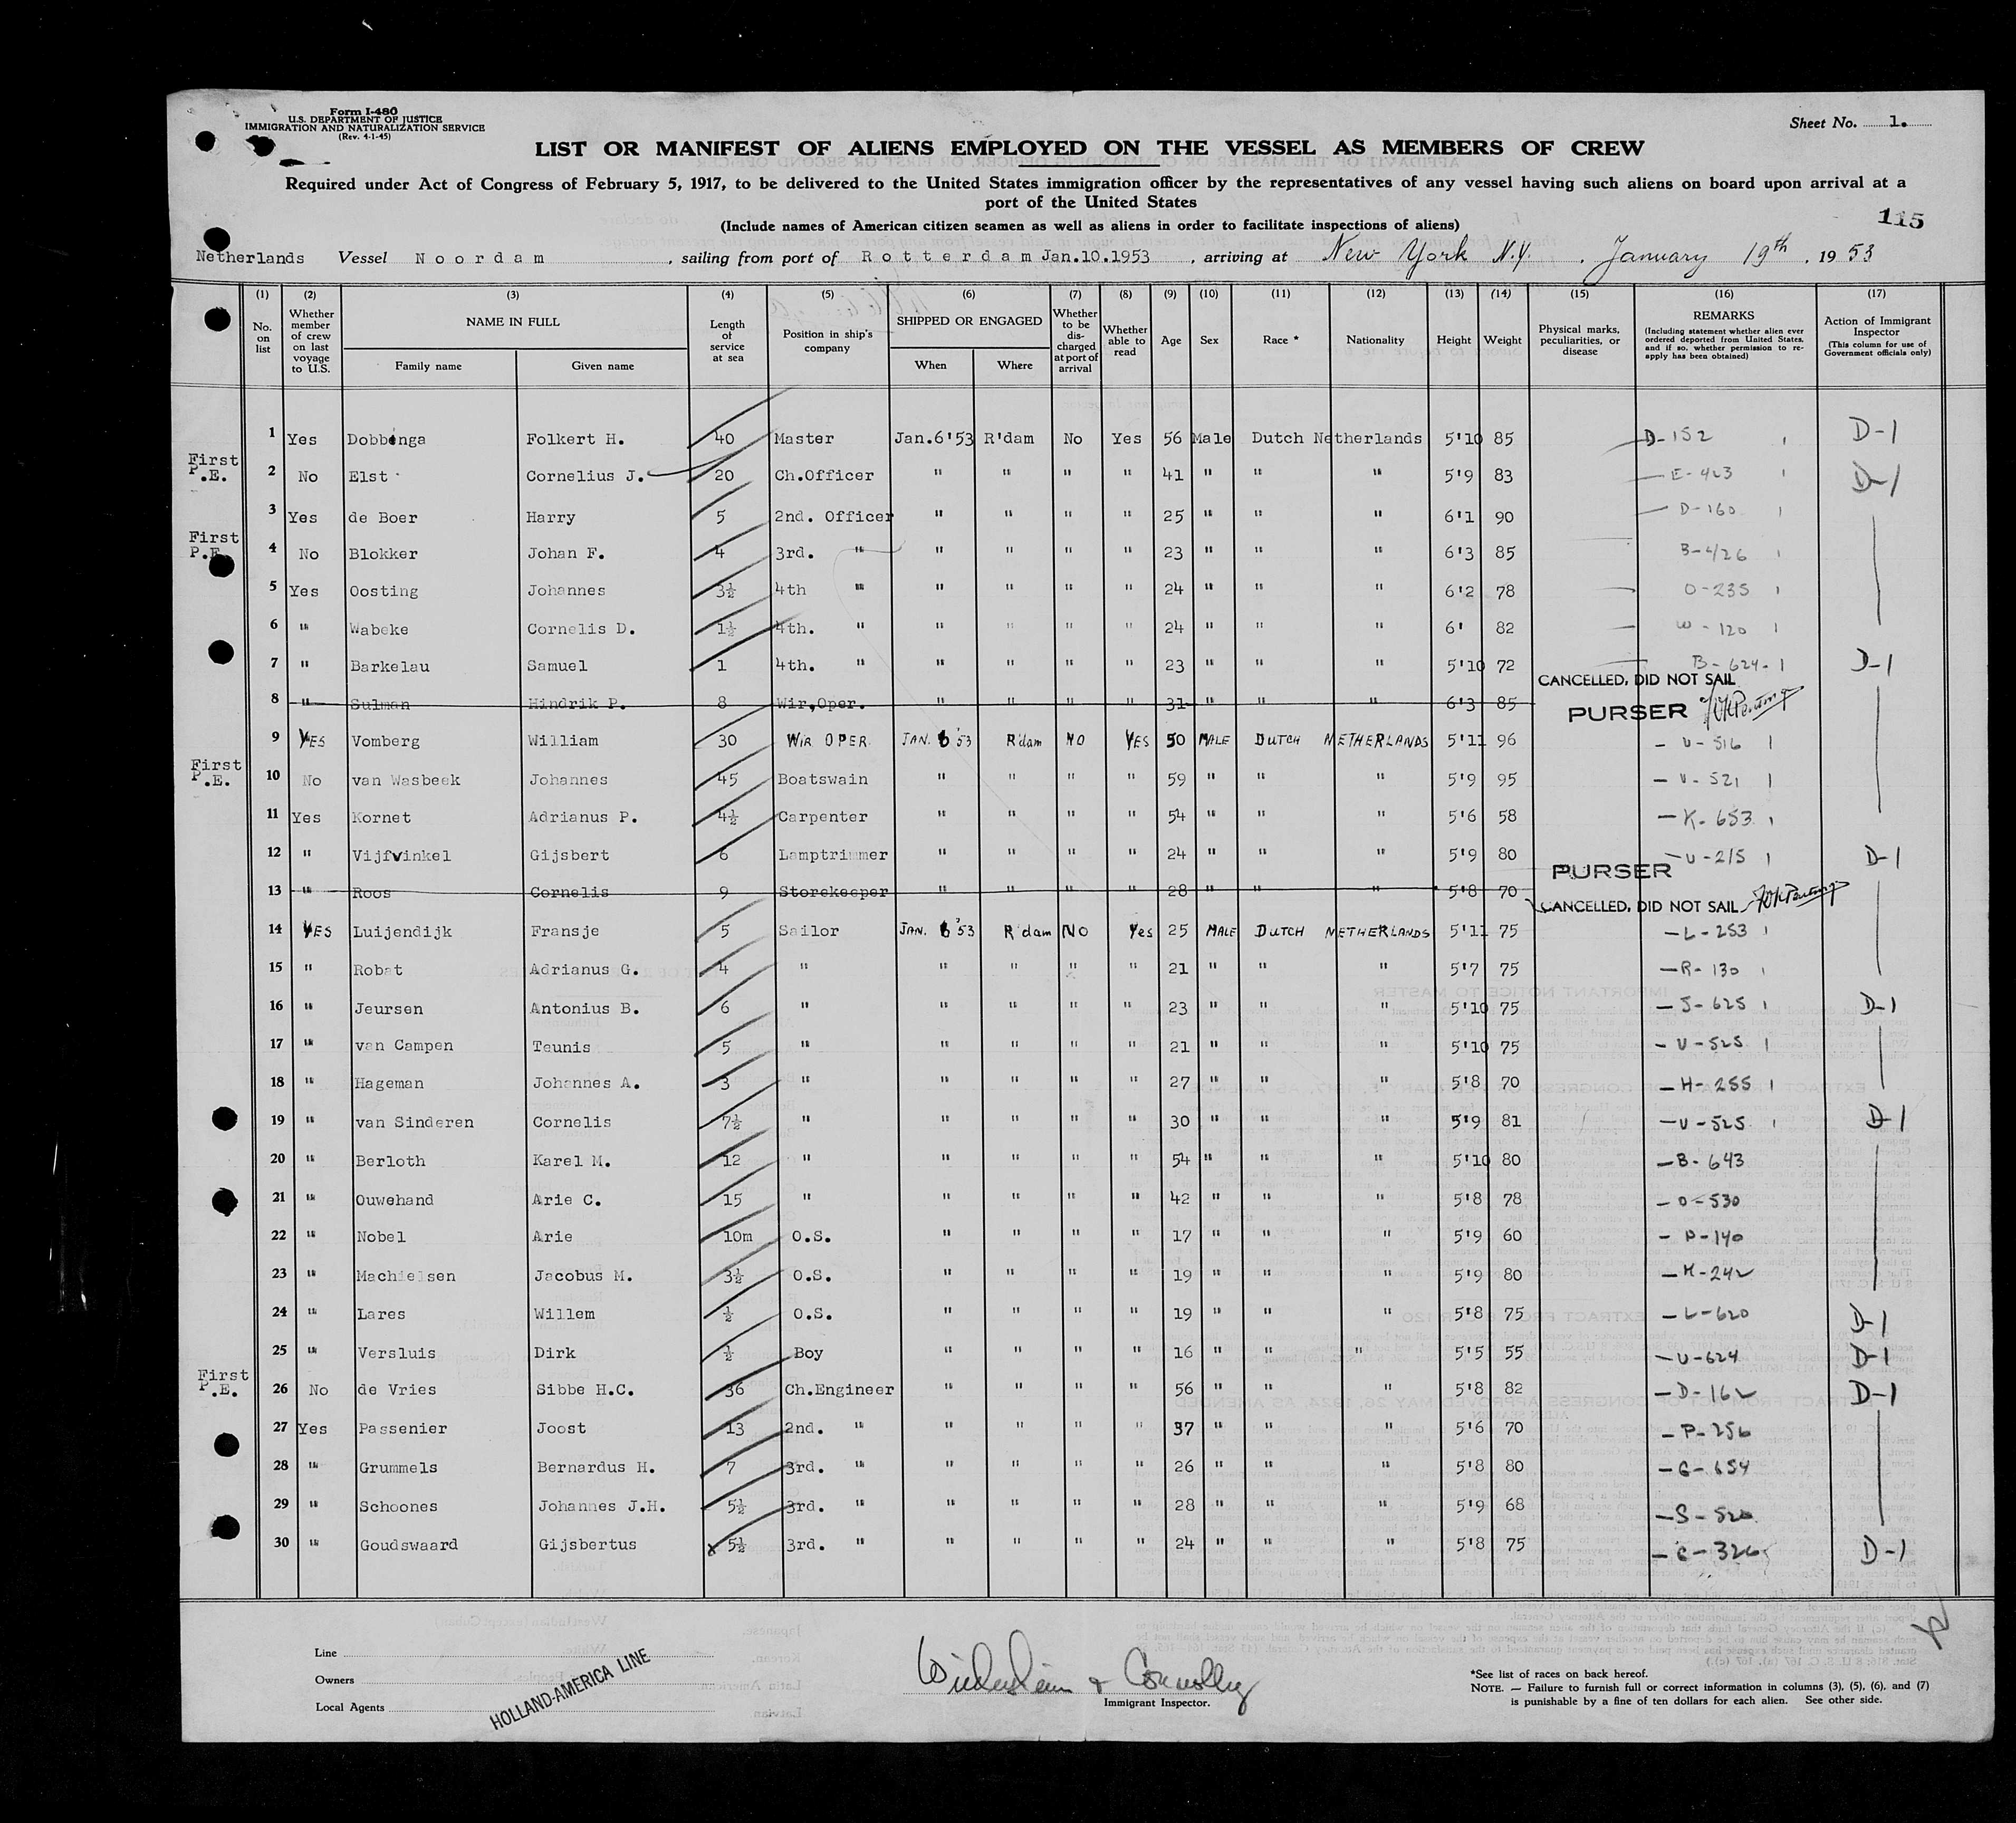 Form I-480
U.S. DEPARTMENT OF JUSTICE
IMMIGRATION AND NATURALIZATION SERVICE
(Rev. 4-1-45)
Sheet No. 1.
LIST OR MANIFEST OF ALIENS EMPLOYED ON THE VESSEL AS MEMBERS OF CREW
Required under Act of Congress of February 5, 1917, to be delivered to the United States immigration officer by the representatives of any vessel having such aliens on board upon arrival at a
port of the United States
(Include names of American citizen seamen as well as aliens in order to facilitate inspections of aliens)
115
Netherlands Vessel Noordam, sailing from port of Rotterdam Jan.10.1953, arriving at New York N.Y., January 19th, 1953
(1) (2) (3) (4) (5) (6) (7) (8) (9) (10) (11) (12) (13) (14) (15) (16) (17)
No. on list
Whether member of crew on last voyage to U.S.
NAME IN FULL
Family name
Given name
Length of service at sea
Position in ship's company
SHIPPED OR ENGAGED
When
Where
Whether to be discharged at port of arrival
Whether able to read
Age
Sex
Race *
Nationality
Height
Weight
Physical marks, peculiarities, or disease
REMARKS
(Including statement whether alien ever ordered deported from United States, and if so, whether permission to reapply has been obtained)
Action of Immigrant Inspector
(This column for use of Government officials only)
1 Yes Dobbinga Folkert H. 40 Master Jan.6'53 R'dam No Yes 56 Male Dutch Netherlands 5'10 85 D-152 D-1
First P.E. 2 No Elst Cornelius J. 20 Ch.Officer " " " " 41 " " " 5'9 83 E-423 D-1
3 Yes de Boer Harry 5 2nd. Officer " " " " 25 " " " 6'1 90 D-160
First P.E. 4 No Blokker Johan F. 4 3rd. " " " " " 23 " " " 6'3 85 B-426
5 Yes Oosting Johannes 3½ 4th " " " " " 24 " " " 6'2 78 O-235
6 " Wabeke Cornelis D. 1½ 4th. " " " " " 24 " " " 6' 82 W-120
7 " Barkelau Samuel 1 4th. " " " " " 23 " " " 5'10 72 B-624 D-1
CANCELLED, DID NOT SAIL
8 " Sulman Hindrik P. 8 Wir.Oper. " " " " 31 " " " 6'3 85 PURSER
9 YES Vomberg William 30 WIR OPER. JAN. 6 '53 R'dam NO YES 50 MALE DUTCH NETHERLANDS 5'11 96 V-516
First P.E. 10 No van Wasbeek Johannes 45 Boatswain " " " " 59 " " " 5'9 95 V-521
11 Yes Kornet Adrianus P. 4½ Carpenter " " " " 54 " " " 5'6 58 K-653
12 " Vijfvinkel Gijsbert 6 Lamptrimmer " " " " 24 " " " 5'9 80 V-215 D-1
PURSER
13 " Roos Cornelis 9 Storekeeper " " " " 28 " " " 5'8 70
CANCELLED, DID NOT SAIL
14 YES Luijendijk Fransje 5 Sailor JAN. 6 '53 R'dam NO Yes 25 MALE DUTCH NETHERLANDS 5'11 75 L-253
15 " Robat Adrianus G. 4 " " " " " 21 " " " 5'7 75 R-130
16 " Jeursen Antonius B. 6 " " " " " 23 " " " 5'10 75 J-625 D-1
17 " van Campen Teunis 5 " " " " " 21 " " " 5'10 75 V-525
18 " Hageman Johannes A. 3 " " " " " 27 " " " 5'8 70 H-255
19 " van Sinderen Cornelis 7½ " " " " " 30 " " " 5'9 81 V-525 D-1
20 " Berloth Karel M. 12 " " " " " 54 " " " 5'10 80 B-643
21 " Ouwehand Arie C. 15 " " " " " 42 " " " 5'8 78 O-530
22 " Nobel Arie 10m O.S. " " " " 17 " " " 5'9 60 P-140
23 " Machielsen Jacobus M. 3½ O.S. " " " " 19 " " " 5'9 80 M-242
24 " Lares Willem ½ O.S. " " " " 19 " " " 5'8 75 L-620 D-1
25 " Versluis Dirk ½ Boy " " " " 16 " " " 5'5 55 V-624 D-1
First P.E. 26 No de Vries Sibbe H.C. 36 Ch.Engineer " " " " 56 " " " 5'8 82 D-162 D-1
27 Yes Passenier Joost 13 2nd. " " " " " 37 " " " 5'6 70 P-256
28 " Grummels Bernardus H. 7 3rd. " " " " " 26 " " " 5'8 80 G-654
29 " Schoones Johannes J.H. 5½ 3rd. " " " " " 28 " " " 5'9 68 S-520
30 " Goudswaard Gijsbertus 5½ 3rd. " " " " " 24 " " " 5'8 75 G-326 D-1
Line
Owners
Local Agents
HOLLAND-AMERICA LINE
Connolly
Immigrant Inspector.
*See list of races on back hereof.
NOTE. — Failure to furnish full or correct information in columns (3), (5), (6), and (7)
is punishable by a fine of ten dollars for each alien. See other side.